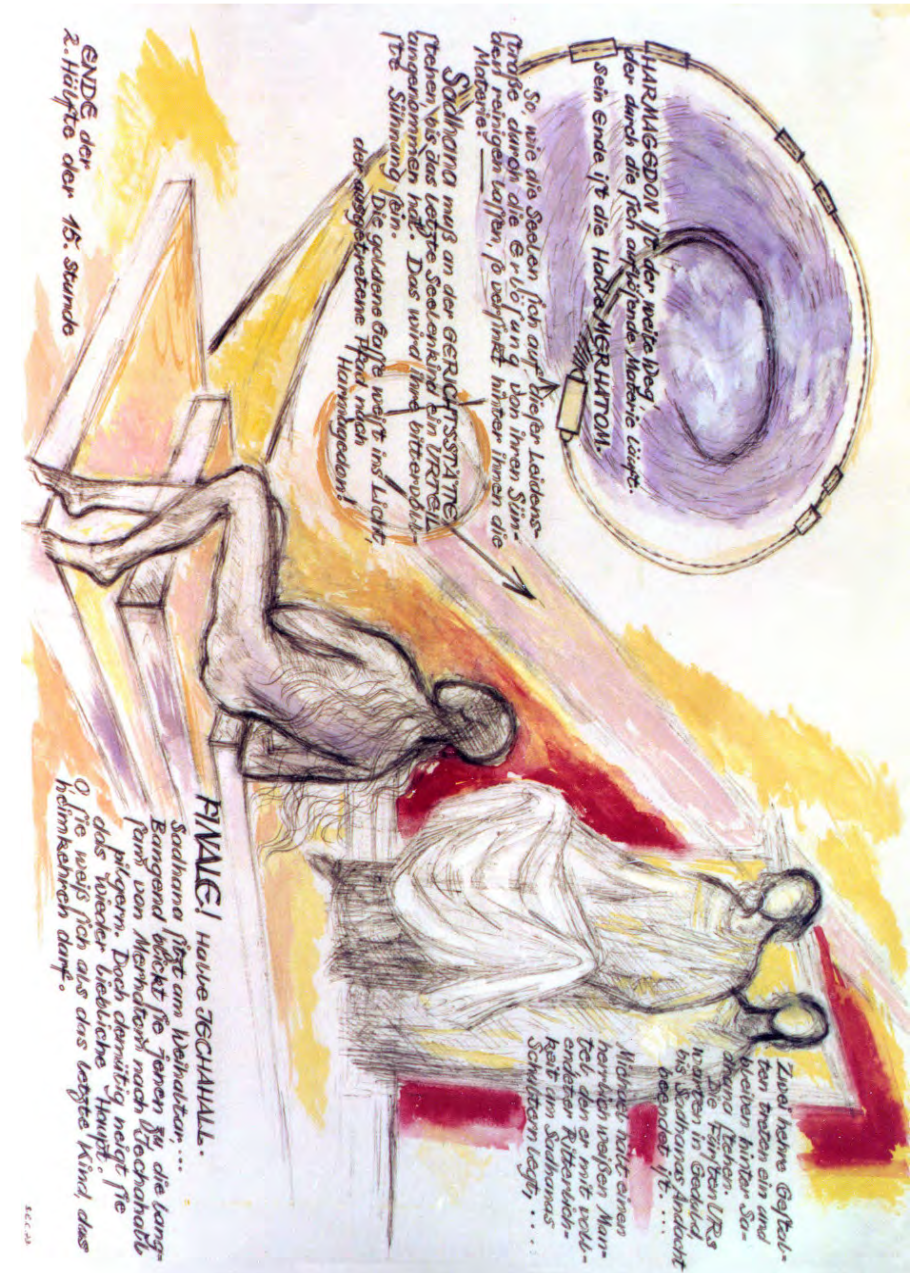 HARMAGEDON ist der weite Weg,
der durch die sich auflösende Materie läuft.
sein Ende ist die Halle MERHATOM.
So, wie die Seelen sich auf dieser Leidens-
straße durch die Erlösung von ihren Sün-
den reinigen lassen, so versinkt hinter ihnen die
Materie.
Sadhana muß an der GERICHTSSTÄTTE
stehen, bis das letzte Seelenkind ein URTEIL
angenommen hat. Das wird ihre bitterobli-
ste Sühnung sein.
Die goldene Gasse weist ins Licht,
der ausgetretene Pfad nach
Harmagedon!
ENDE der
2. Hälfte der 15. Stunde
Zwei hehre Gestal-
ten treten ein und
bleiben hinter Sa-
dhana stehen.
Die Fürsten URs
warten in Geduld,
bis Sadhanas Andacht
beendet ist. . . .
Michael hält einen
herrlichen weißen Man-
tel, den er mit voll-
endeter Ritterlich-
keit um Sadhanas
Schultern legt, . . .
FINALE! Halle JESCHALL.
Sadhana sitzt am Weihaltar . . .
Bangend blickt sie jenen zu, die lang-
sam von Merhatom nach Jeschall
pilgern. Doch demütig neigt sie
das wieder liebliche Haupt.
O sie weiß sich als das letzte Kind, das
heimkehren darf.